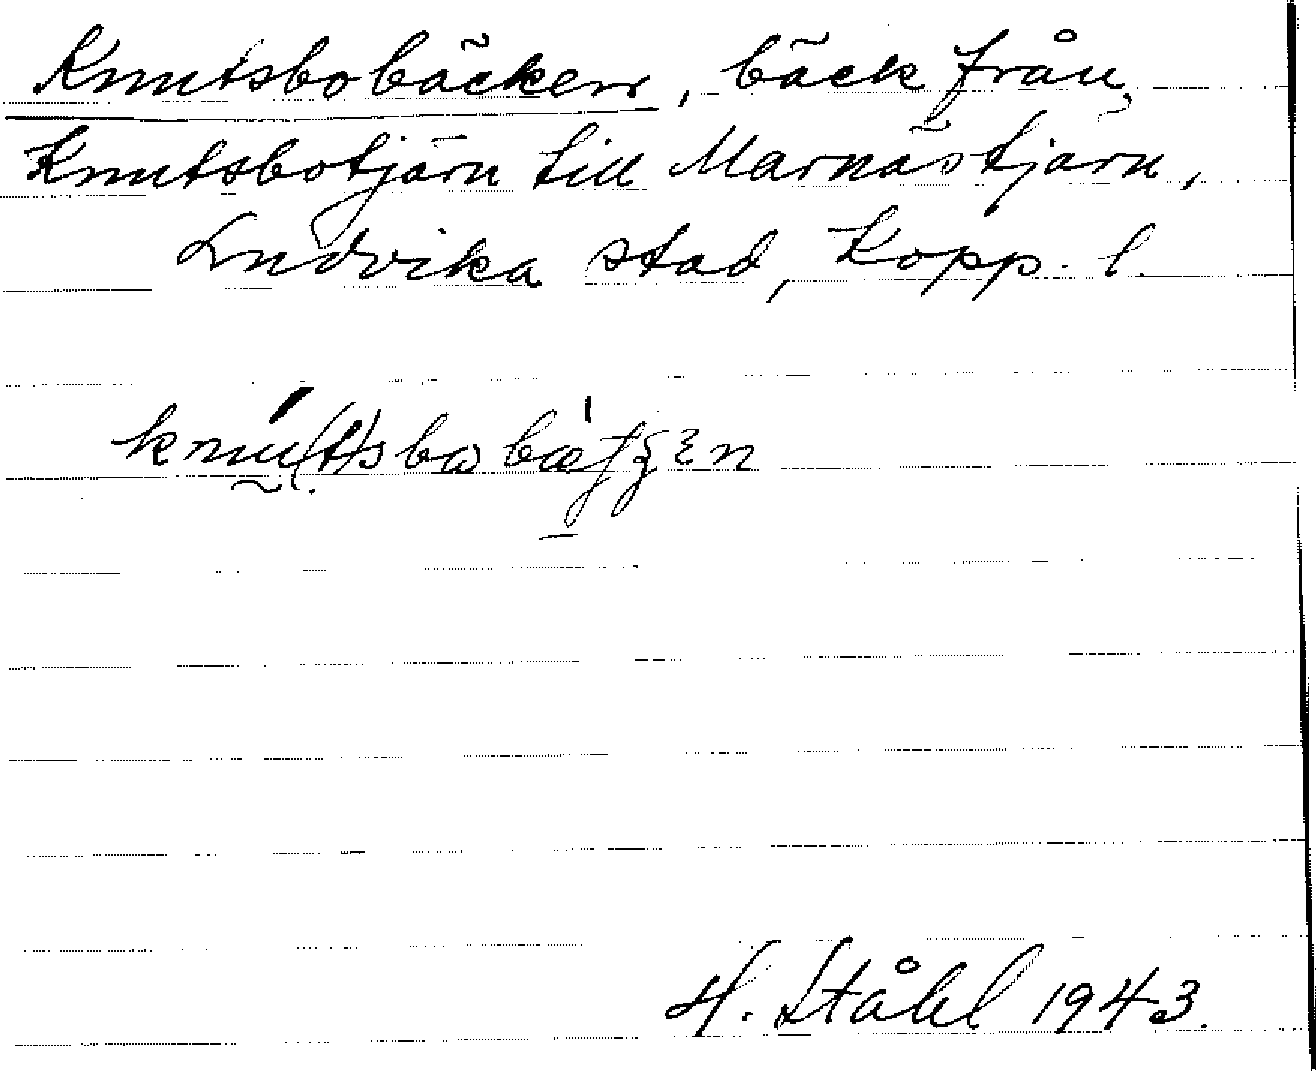 Knutsbobäcken, bäck från
Knutsbotjärn till Marnästjärn,
Ludvika stad, Kopp. l.
H. Ståhl 1943.